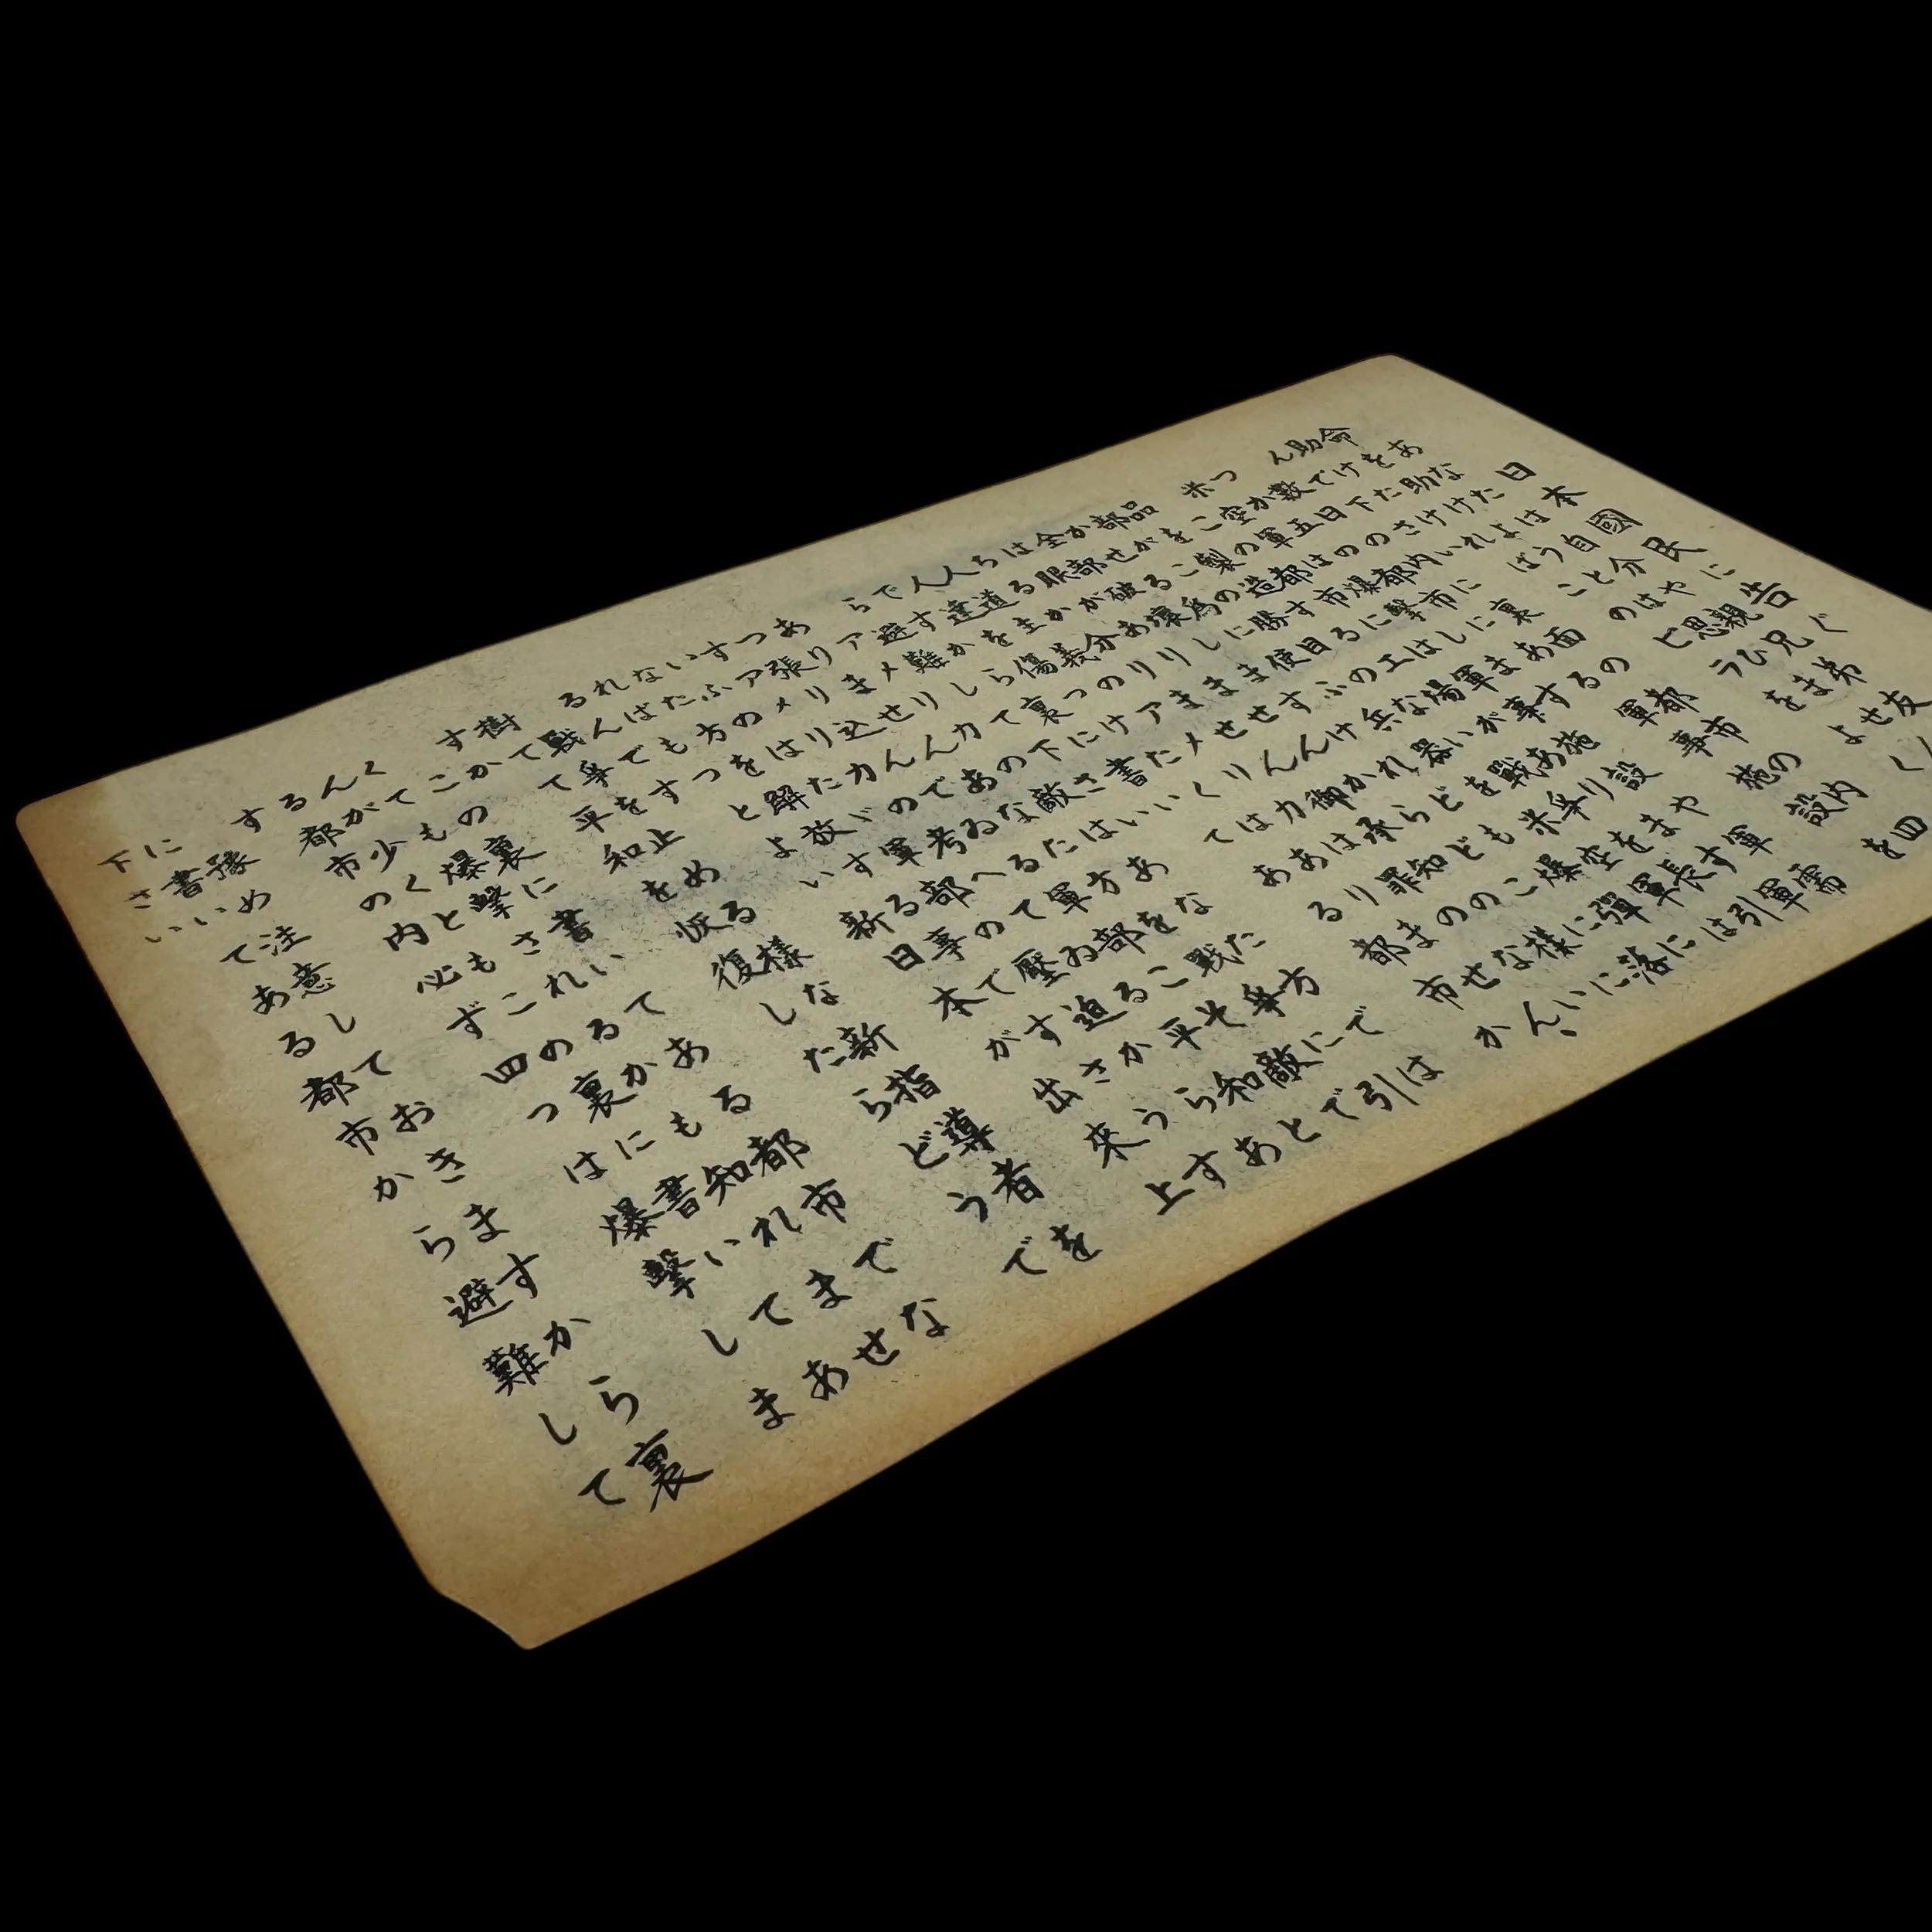 日本國民に告ぐ
あなたは自分や親兄弟友
命を助けようとは思ひませ
助けたければこのビラをよく
んで下さい
數日の内に裏面の都市の内四
つか五の都市にある軍事施設を
米空軍は爆撃します
この都市には軍事施設や軍需
品を製造する工場があります軍
部がこの勝目のない戰争を長引
かせる為に使ふ兵器を米空軍は
全部破壊しますけれども爆彈に
は眼がありませんからどこに落
ちるか分りません御承知の様に
人道主義のアメリカは罪のない
人達を傷つけたくはありません。
ですから裏に書いてある都市か
ら避難して下さい
アメリカの敵はあなた方では
ありませんあなた方を戰争に引
つ張り込んでゐる軍部こそ敵で
す
アメリカの考へてゐる平和と
いふのはたゞ軍部の壓迫からあ
なた方を解放する事ですさうす
ればもつとよい新日本が出來上
るんです
戰争を止める様な新指導者を
樹てて平和を恢復したらどうで
すか
この裏に書いてある都市でな
くても爆撃されるかも知れませ
んが少くともこの裏に書いてあ
る都市の内必ず四つは爆撃しま
す
豫め注意しておきますから裏
に書いてある都市から避難して
下さい